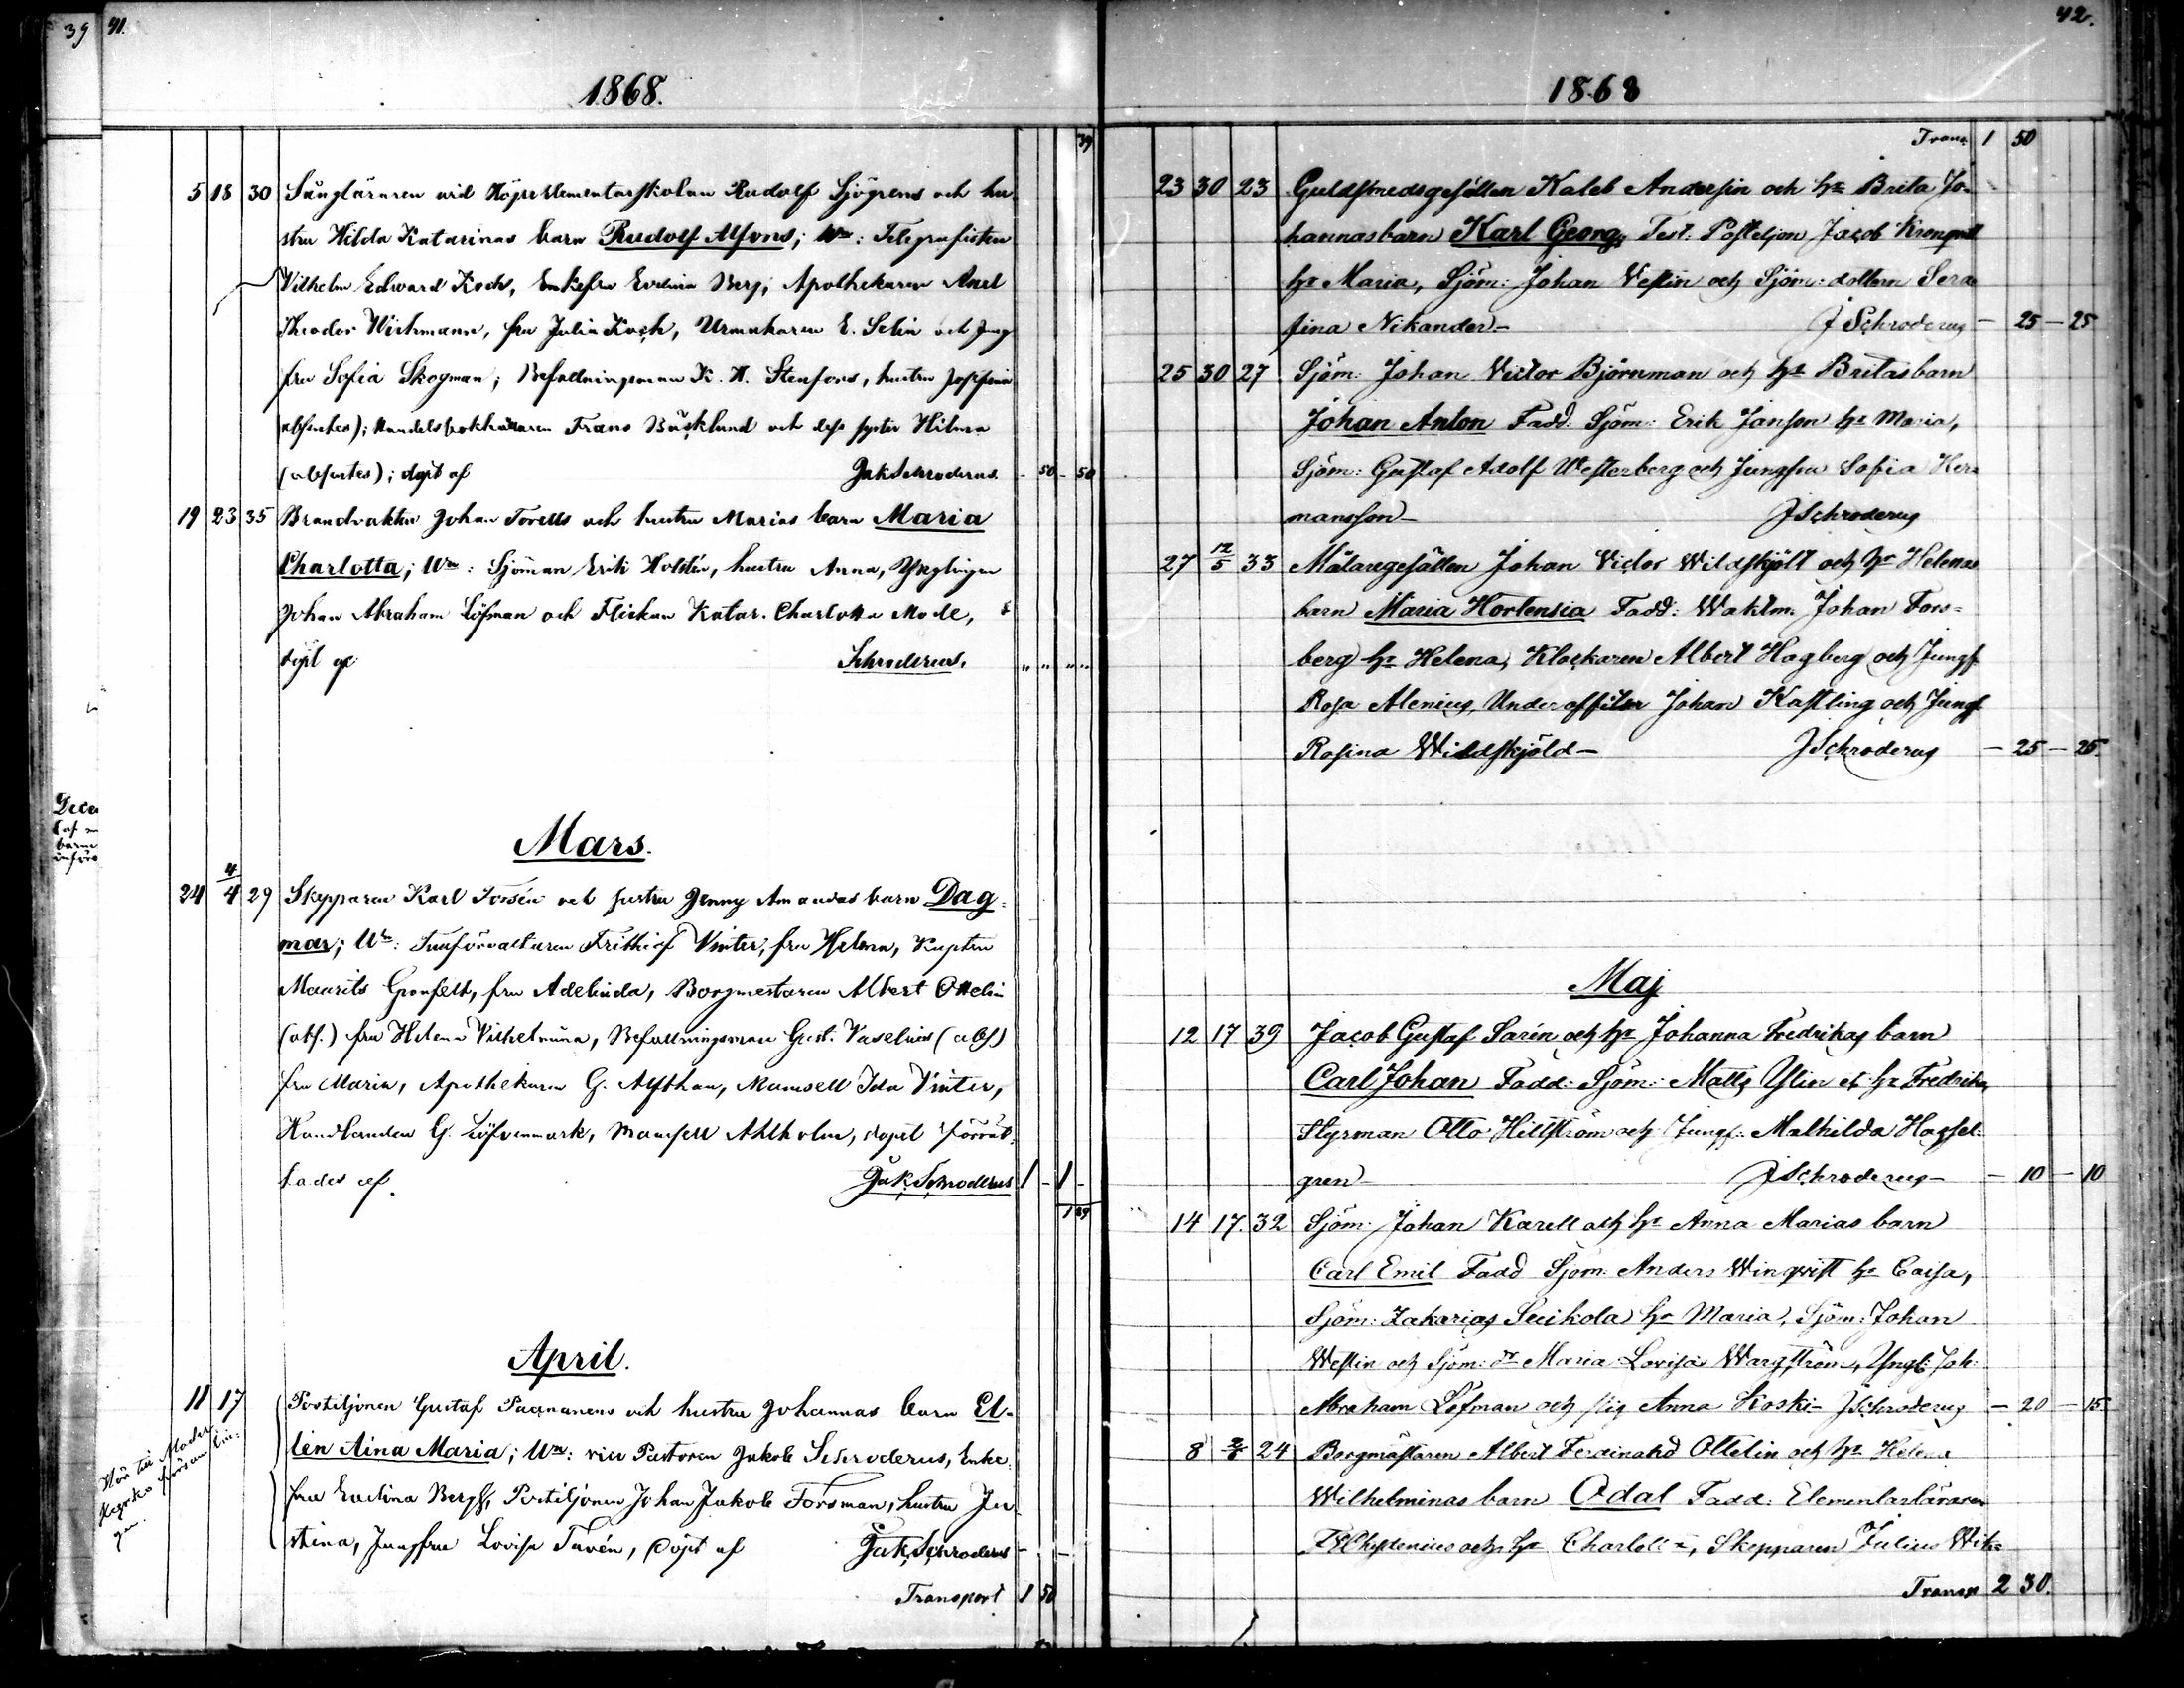 39 41.
1868.
39
5 18 30 Sångläraren wid Högre elementarskolan Rudolf Sjögrens och hu
stru Hilda Katarinas barn Rudolf Alfons; Wn: Telegrafisten
Vilhelm Edward Koch, Enkefru Evelina Berg; Apothekaren Axel
Theodor Wichmann, fru Julia Koch, Urmakaren E. Selin och Jung
fru Sofia Skogman; Befallningsman K. A. Stenfors, hustru Josefina
(absentes); Handelsbokhållaren Frans Bäcklund och dess syster Hilma
(absentes); döpt af Jak Schroderus. - 50 - 50
19 23 35 Brandvakten Johan Torells och hustru Marias barn Maria
Charlotta; Wn: Sjöman Erik Holstén, hustru Anna, Ynglingen
Johan Abraham Löfman och Flickan Katar. Charlotta Mode,
döpt af Schroderus. " " " "
Mars.
24 4/4 29 Skepparen Karl Forsén och hustru Jenny Amandas barn Dag-
mar; Wn: Tullförvaltaren Frithiof Winter, fru Helena, Kapten
Maurits Gronfelt, fru Adelinda, Borgmestaren Albert Ottelin
(abs.) fru Helena Vilhelmina, Befallningsman Gust. Vaselius (abs)
fru Maria, Apothekaren G. Alfthan, Mamsell Ida Vinter,
Handlanden G. Löfvenmark, Mamsell Ahlholm, dopet förrät-
tades af Jak. Schroderus 1 - 1 -
1 89
April.
11 17 Postiljonen Gustaf Paananens och hustru Johannas barn El-
len Aina Maria; Wn: vice Pastoren Jakob Schroderus, Enke-
fru Evelina Bergh, Postiljonen Johan Jakob Forsman, hustru Ju-
stina, Jungfru Lovisa Tavén, döpt af Jak. Schroderus - -
Hör till Moder
Kyrko församlin-
gen.
Transport 1 50
42.
1868
Trans. 1 50
23 30 23 Guldsmedsgesällen Kaleb Andersin och Hu Brita Jo-
hannas barn Karl Georg, Test: Posteljon Jacob Kronqvist
Hu Maria, Sjöm: Johan Westin och Sjöm: dottern Sera
fina Nikander - J Schroderus - 25 - 25
25 30 27 Sjöm: Johan Victor Björnman och Hu Britas barn
Johan Anton Fadd: Sjöm: Erik Janson Hu Maria,
Sjöm: Gustaf Adolf Westerberg och Jungfru Sofia Her-
mansson - J Schroderus
27 12/5 33 Målaregesällen Johan Victor Wildskjölt och Hu Helenas
barn Maria Hortensia Fadd: Waktm: Johan Fors-
berg Hu Helena, Klockaren Albert Hagberg och Jungf
Rosa Alenius, Underofficer Johan Kastling och Jungf
Rosina Wildskjöld - J Schroderus - 25 - 25.
Maj
12 17 39 Jacob Gustaf Sarin och Hu Johanna Fredrikas barn
Carl Johan Fadd: Sjöm: Matts Ylin et Hu Fredrika,
Styrman Otto Hellström och Jungf: Mathilda Hassel-
gren - J Schroderus - - 10 - 10
14 17. 32 Sjöm: Johan Karell och Hu Anna Marias barn
Carl Emil Fadd Sjöm: Anders Winqvist Hu Caisa,
Sjöm: Zakarias Seikola Hu Maria, Sjöm: Johan
Westin och Sjöm: dr Maria Lovisa Wargström, Yngl: Joh:
Abraham Löfman och pig Anna Koski - J Schroderus - 20 - 15.
8 24 Borgmästaren Albert Ferdinand Ottelin och Hu Helena
Wilhelminas barn Odal Fadd: Elementarläraren
Chydenius och Hu Charlotta, Skepparen Julius Wik-
Transp 2 30.